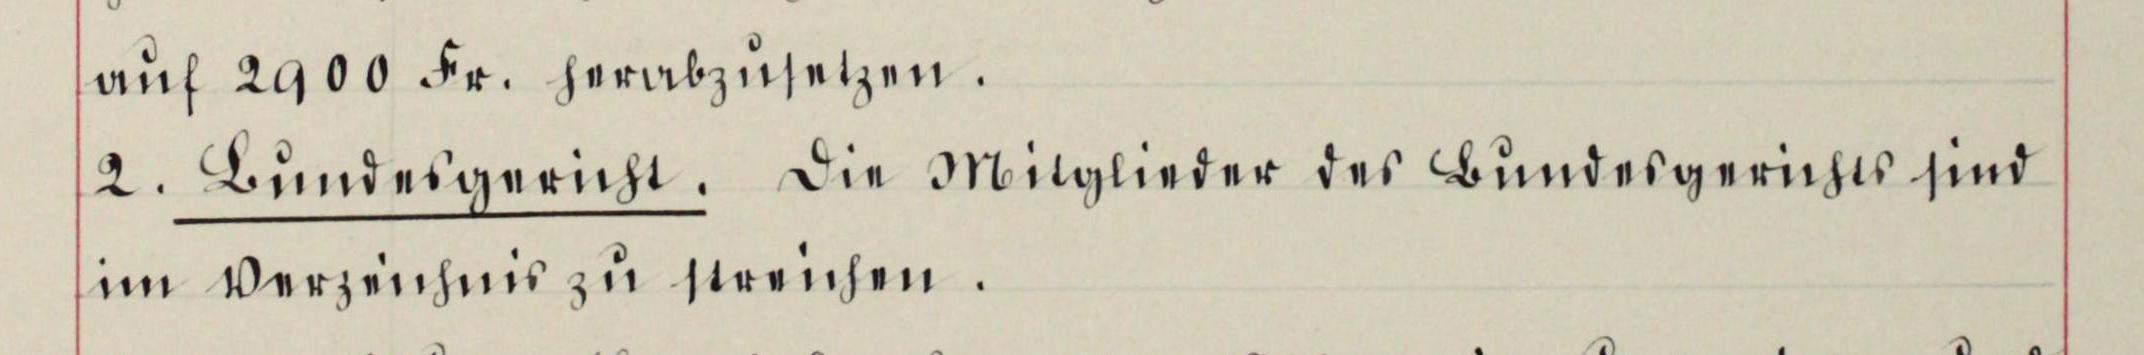 auf 2900 Fr. herabzusetzen.
2. Bundesgericht. Die Mitglieder des Bundesgerichts sind
im Verzeichnis zu streichen.